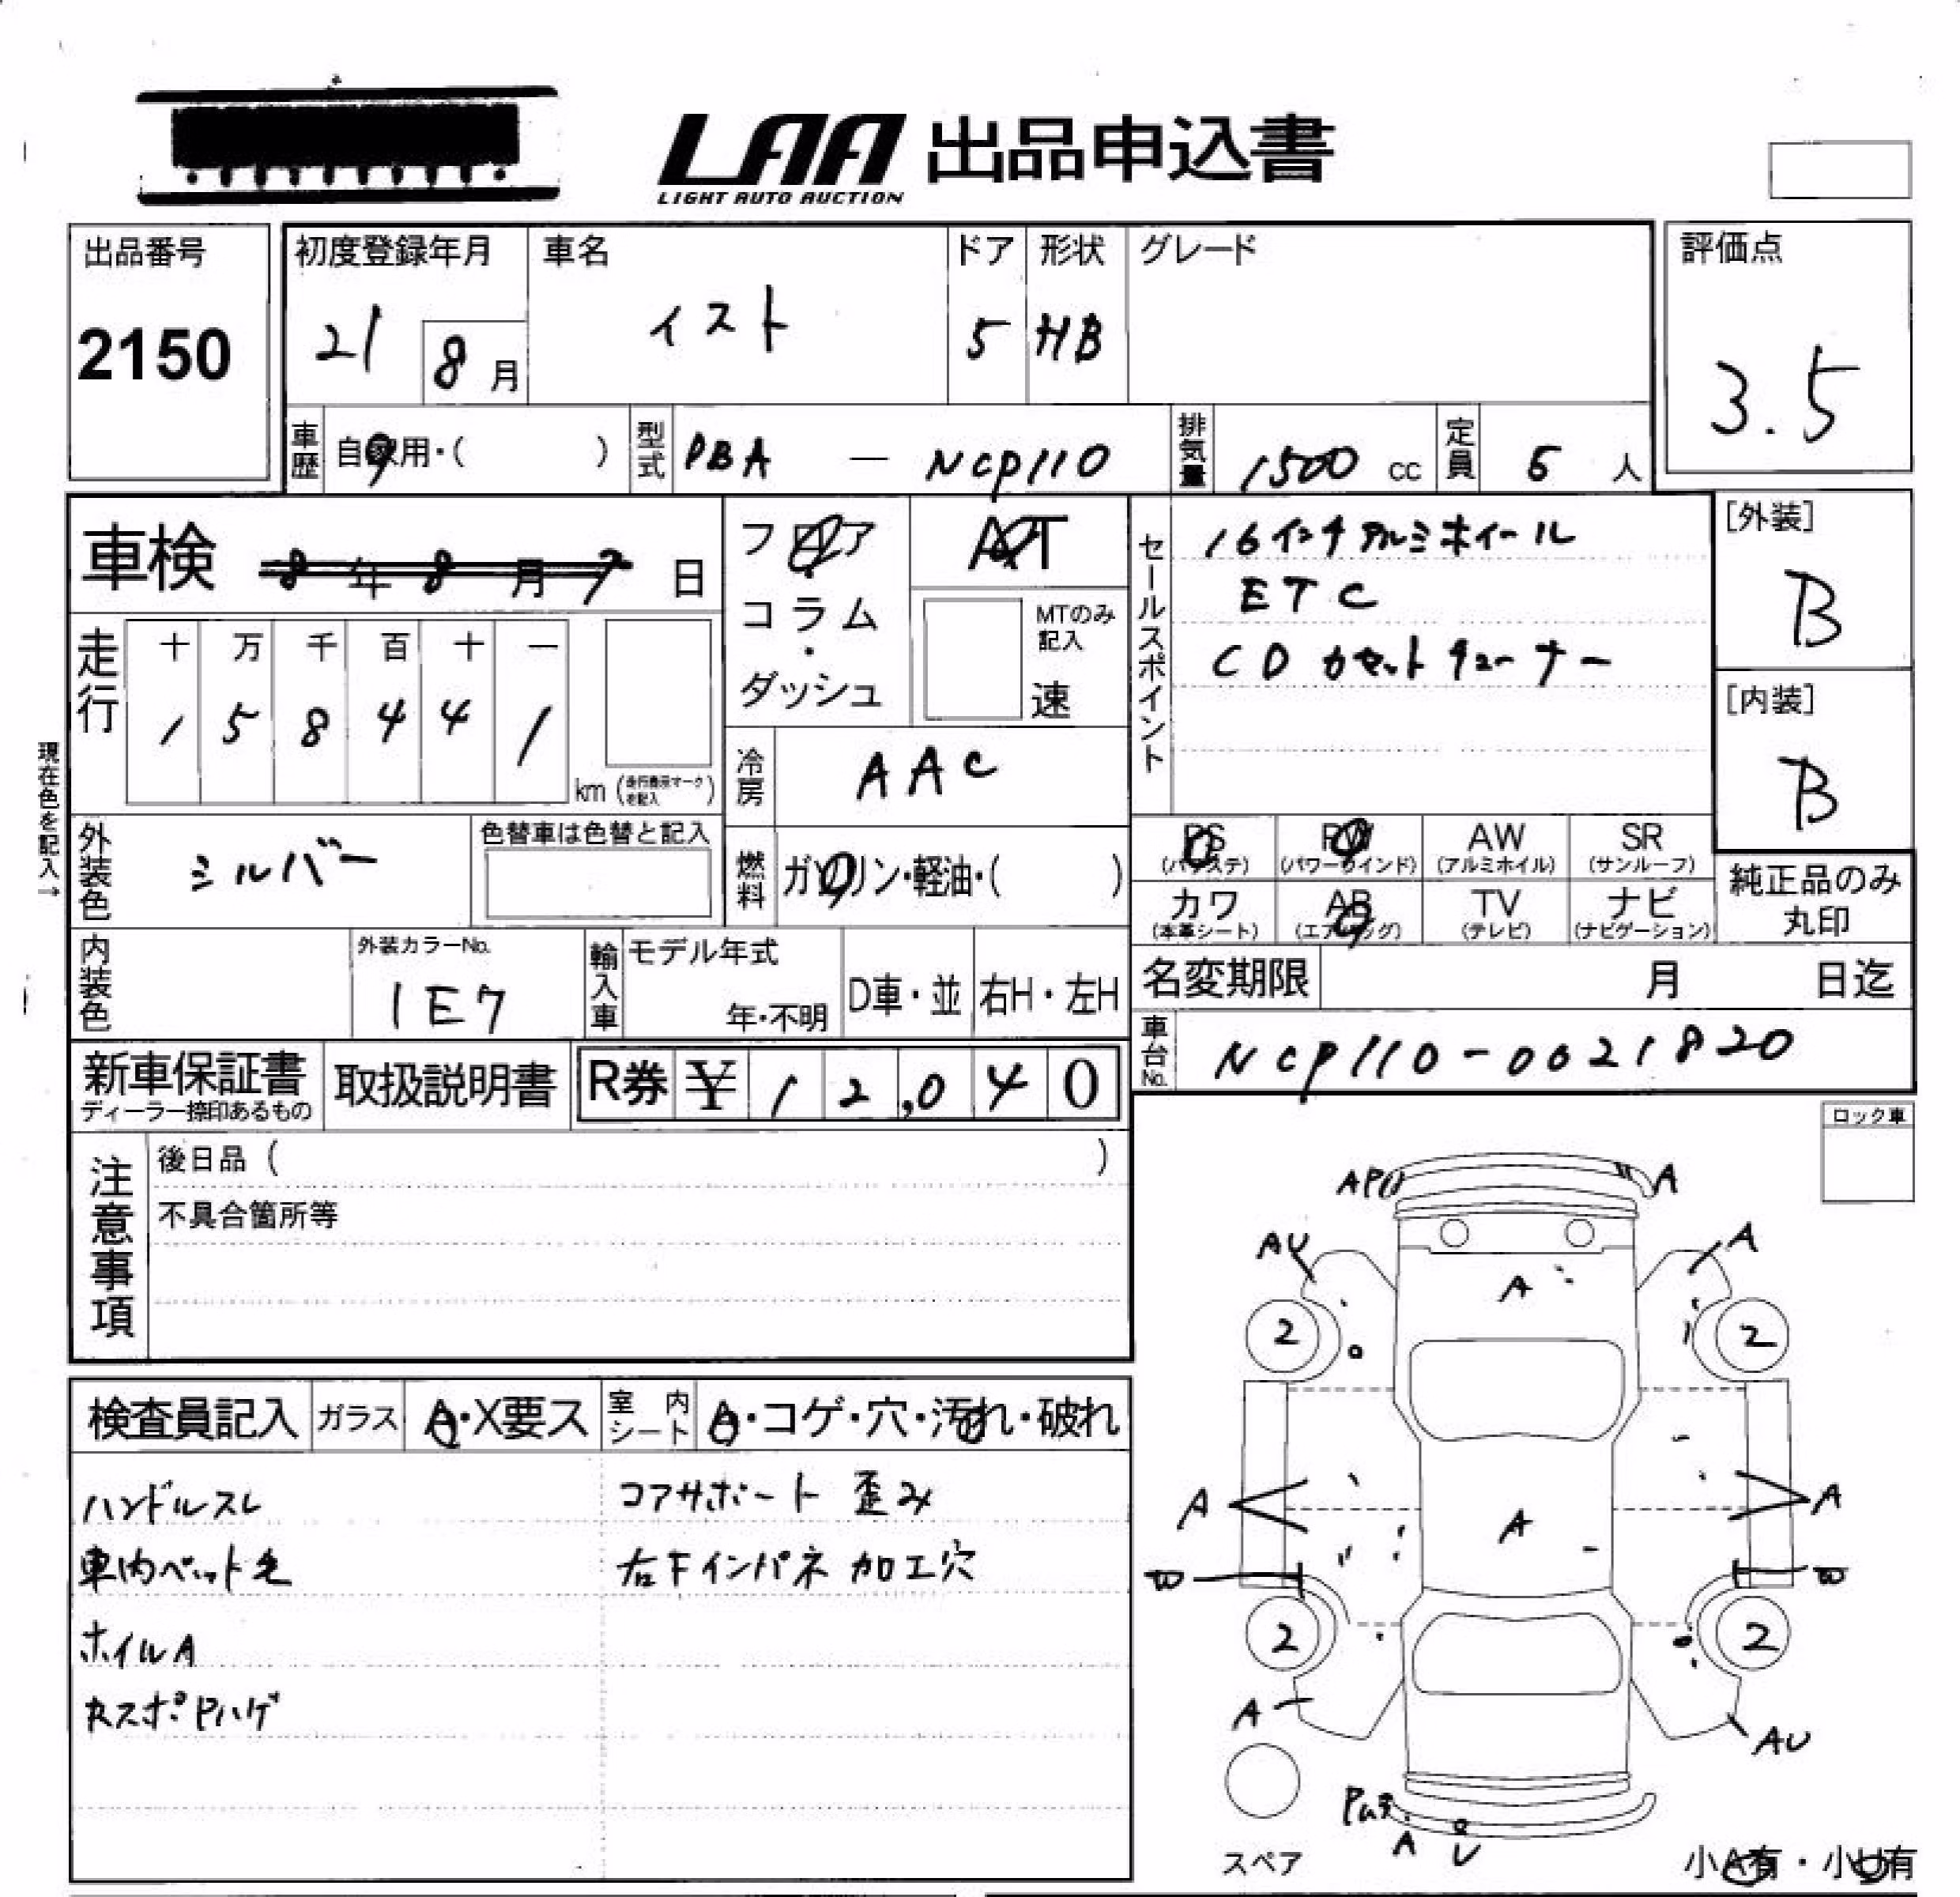 LAA 出品申込書
LIGHT AUTO AUCTION
出品番号
2150
初度登録年月
21
8月
車名
イスト
ドア
5
形状
HB
グレード
評価点
3.5
車歴
自家用・( )
型式
DBA — NCP110
排気量
1500 cc
定員
5 人
車検 8年8月7日
フロア
・
コラム
・
ダッシュ
AT
MTのみ記入
速
セールスポイント
16インチアルミホイール
ETC
CDカセットチューナー
[外装]
B
[内装]
B
走行
十 万 千 百 十 一
1 5 8 4 4 1
km (走行表示マークを記入)
現在色を記入→
冷房
AAC
外装色
シルバー
色替車は色替と記入
燃料
ガソリン・軽油・( )
PS
(パワステ)
PW
(パワーウインド)
AW
(アルミホイル)
SR
(サンルーフ)
カワ
(本革シート)
AB
(エアバッグ)
TV
(テレビ)
ナビ
(ナビゲーション)
純正品のみ
丸印
内装色
外装カラーNo.
1E7
輸入車
モデル年式
年・不明
D車・並
右H・左H
名変期限 月 日迄
車台No.
NCP110-0021820
新車保証書
ディーラー捺印あるもの
取扱説明書
R券 ¥ 12,040
注意事項
後日品 ( )
不具合箇所等
ロック車
検査員記入
ガラス
A・X要ス
室内シート
A・コゲ・穴・汚れ・破れ
ハンドルスレ
車内ペット毛
ホイルA
カスポPハゲ
コアサポート 歪み
右Fインパネ 加工穴
A
AU
A
A
2
2
A
A
A
W
W
2
2
A
AU
A
U
スペア
小A有・小U有